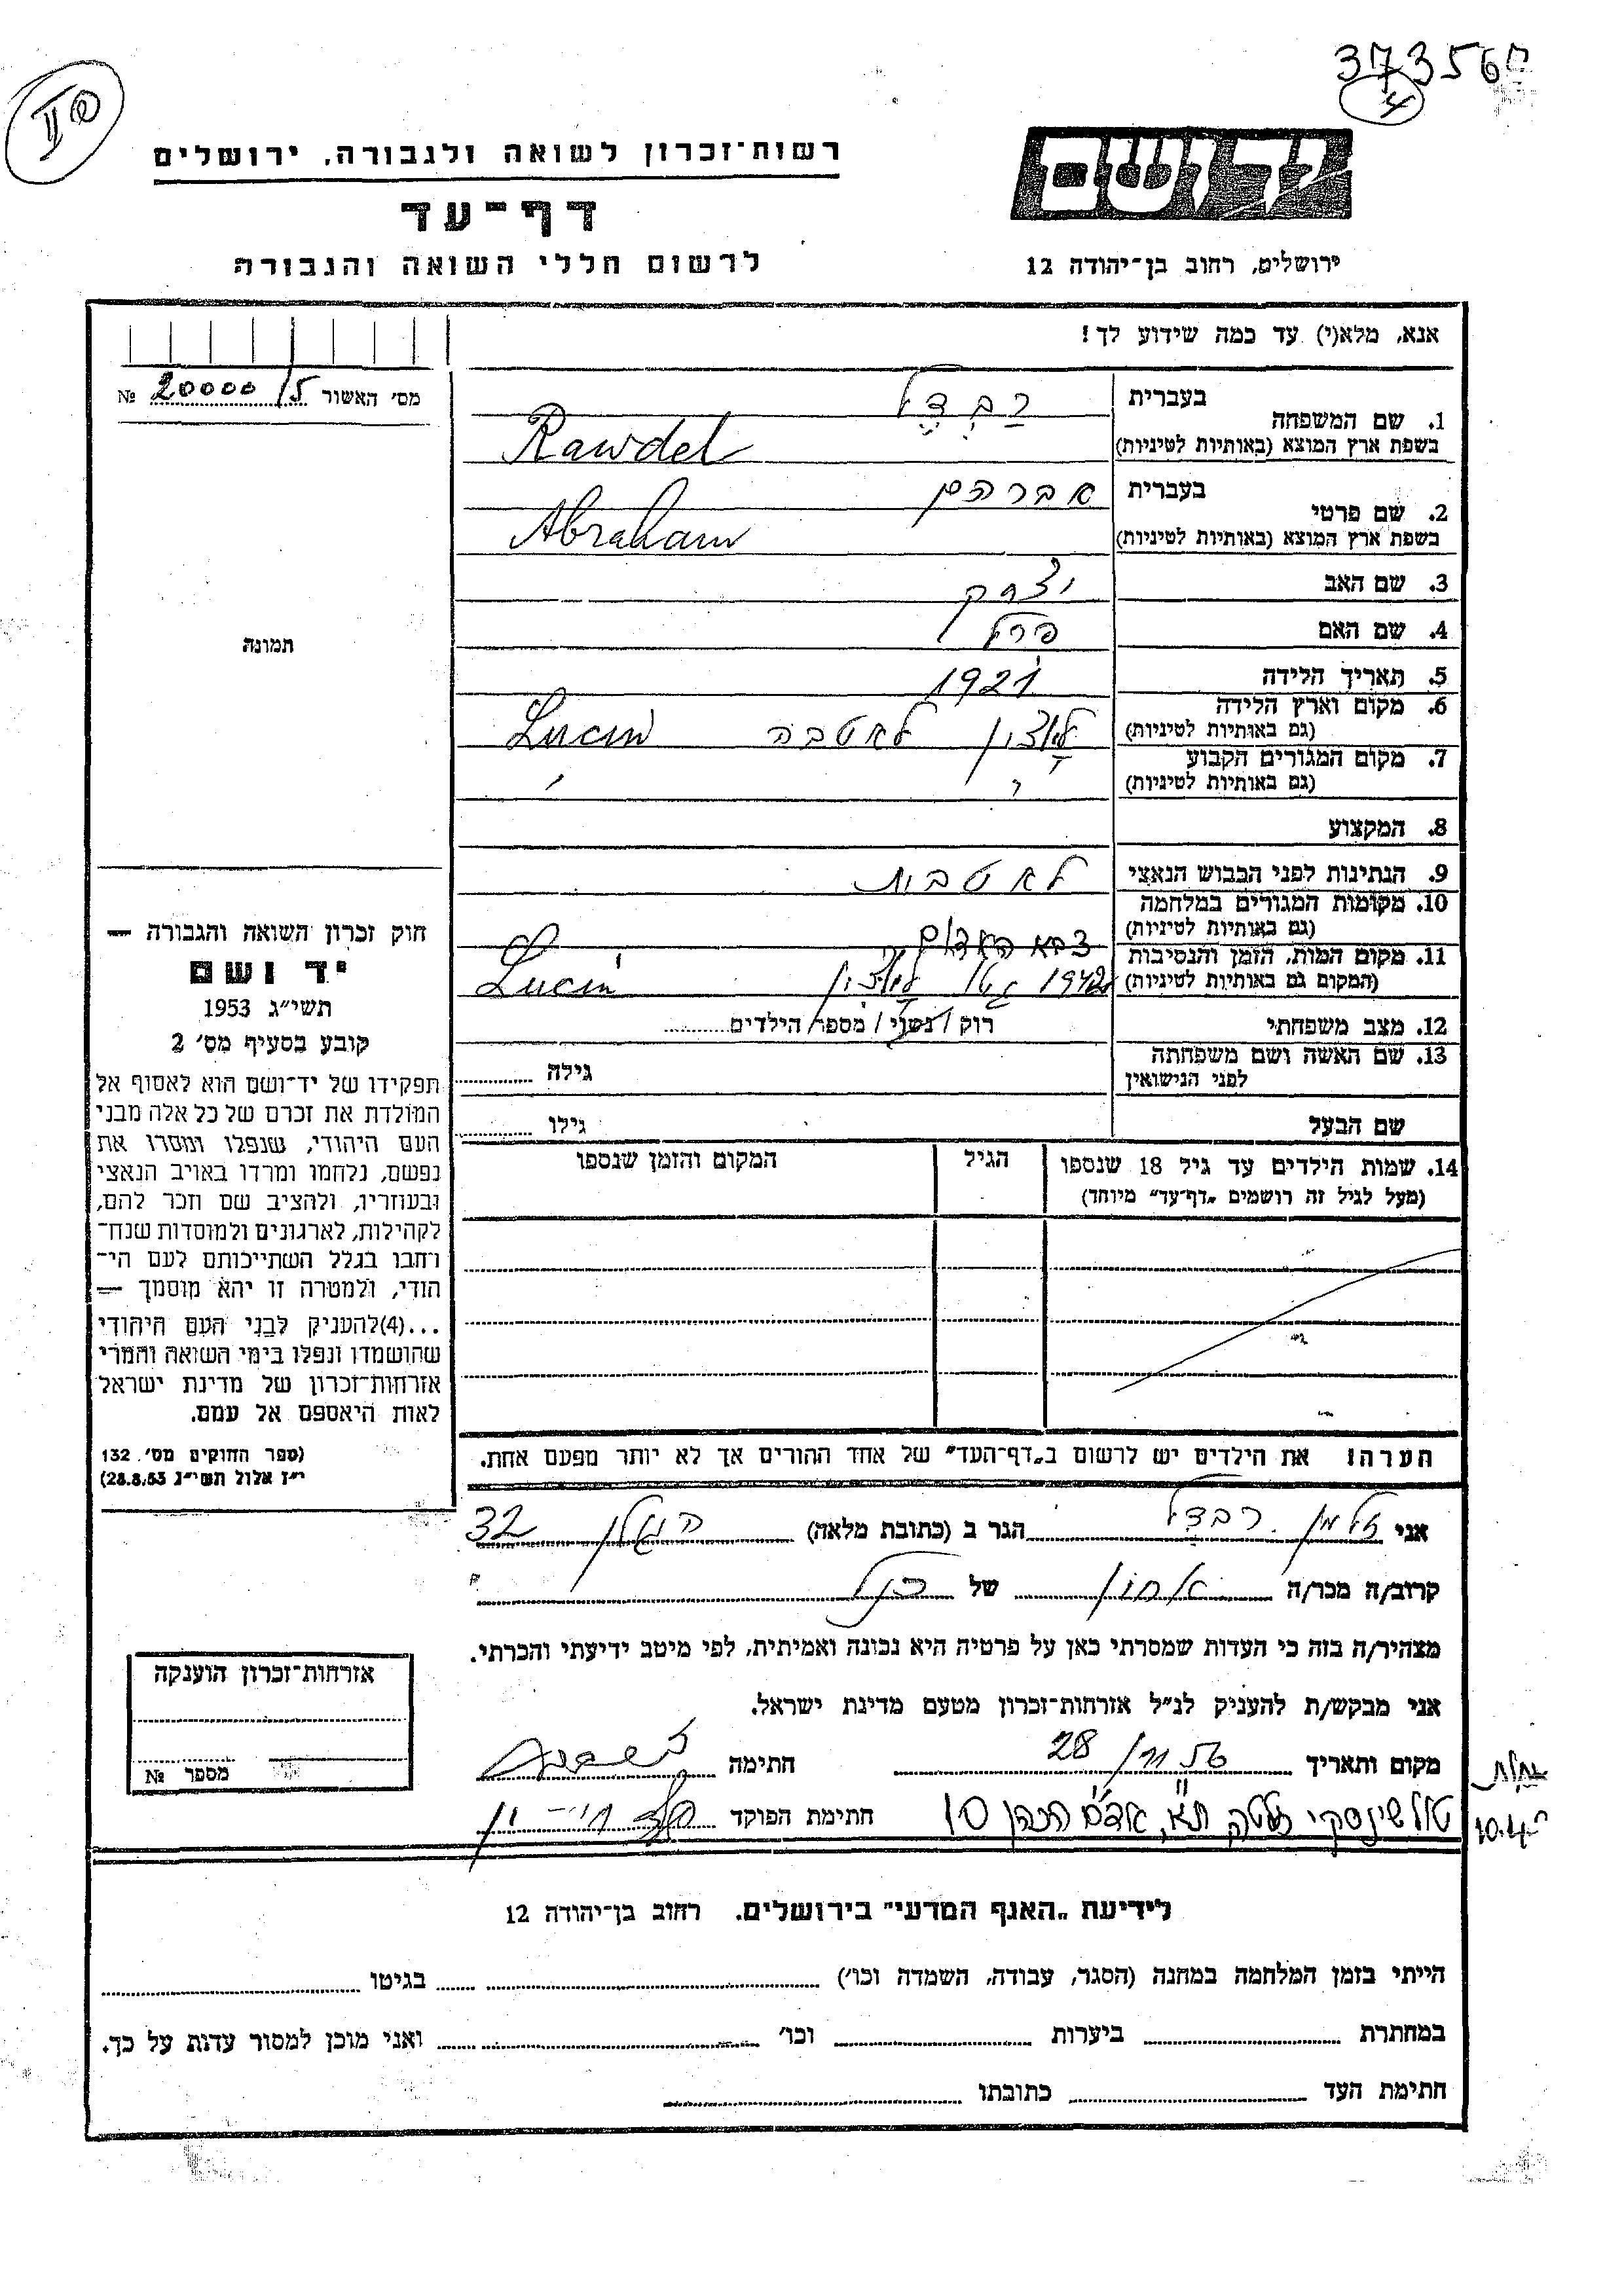 373560
4
רשות־זכרון לשואה ולגבורה, ירושלים
דף־עד
לרשום חללי השואה והגבורה
יד ושם
ירושלים, רחוב בן־יהודה 12
אנא, מלא(י) עד כמה שידוע לך!
מס׳ האשור 20000/5 №
1. שם המשפחה
בעברית רבדל
בשפת ארץ המוצא (באותיות לטיניות) Rawdel
2. שם פרטי
בעברית אברהם
בשפת ארץ המוצא (באותיות לטיניות) Abraham
3. שם האב יצחק
4. שם האם פרל
5. תאריך הלידה 1921
6. מקום וארץ הלידה
(גם באותיות לטיניות) לוצין לאטביה Lucin
7. מקום המגורים הקבוע
(גם באותיות לטיניות) " "
8. המקצוע
9. הנתינות לפני הכבוש הנאצי לאטבית
10. מקומות המגורים במלחמה
(גם באותיות לטיניות) צבא האדום
11. מקום המות, הזמן והנסיבות
(המקום גם באותיות לטיניות) 1942 גטו לוצין Lucin
12. מצב משפחתי רוק / נשוי / מספר הילדים
13. שם האשה ושם משפחתה
לפני הנישואין גילה
שם הבעל גילו
14. שמות הילדים עד גיל 18 שנספו
(מעל לגיל זה רושמים „דף־עד״ מיוחד)
הגיל
המקום והזמן שנספו
הערה! את הילדים יש לרשום ב„דף־העד״ של אחד ההורים אך לא יותר מפעם אחת.
תמונה
חוק זכרון השואה והגבורה —
יד ושם
תשי״ג 1953
קובע בסעיף מס׳ 2
תפקידו של יד־ושם הוא לאסוף אל
המולדת את זכרם של כל אלה מבני
העם היהודי, שנפלו ומסרו את
נפשם, נלחמו ומרדו באויב הנאצי
ובעוזריו, ולהציב שם וזכר להם,
לקהילות, לארגונים ולמוסדות שנח־
רחבו בגלל השתייכותם לעם הי־
הודי, ולמטרה זו יהא מוסמך —
...(4)להעניק לבני העם היהודי
שהושמדו ונפלו בימי השואה והמרי
אזרחות־זכרון של מדינת ישראל
לאות היאספם אל עמם.
(ספר החוקים מס׳ 132
י״ז אלול תשי״ג 28.8.53)
אני זלמן רבדל הגר ב (כתובת מלאה) 32
קרוב/ה מכר/ה של
מצהיר/ה בזה כי העדות שמסרתי כאן על פרטיה היא נכונה ואמיתית, לפי מיטב ידיעתי והכרתי.
אני מבקש/ת להעניק לנ״ל אזרחות־זכרון מטעם מדינת ישראל.
מקום ותאריך 28/ 56 חתימה
10 חתימת הפוקד
אזרחות־זכרון הוענקה
מספר №
לידיעת „האגף המדעי״ בירושלים. רחוב בן־יהודה 12
הייתי בזמן המלחמה במחנה (הסגר, עבודה, השמדה וכו׳) בגיטו
במחתרת ביערות וכו׳ ואני מוכן למסור עדות על כך.
חתימת העד כתובתו